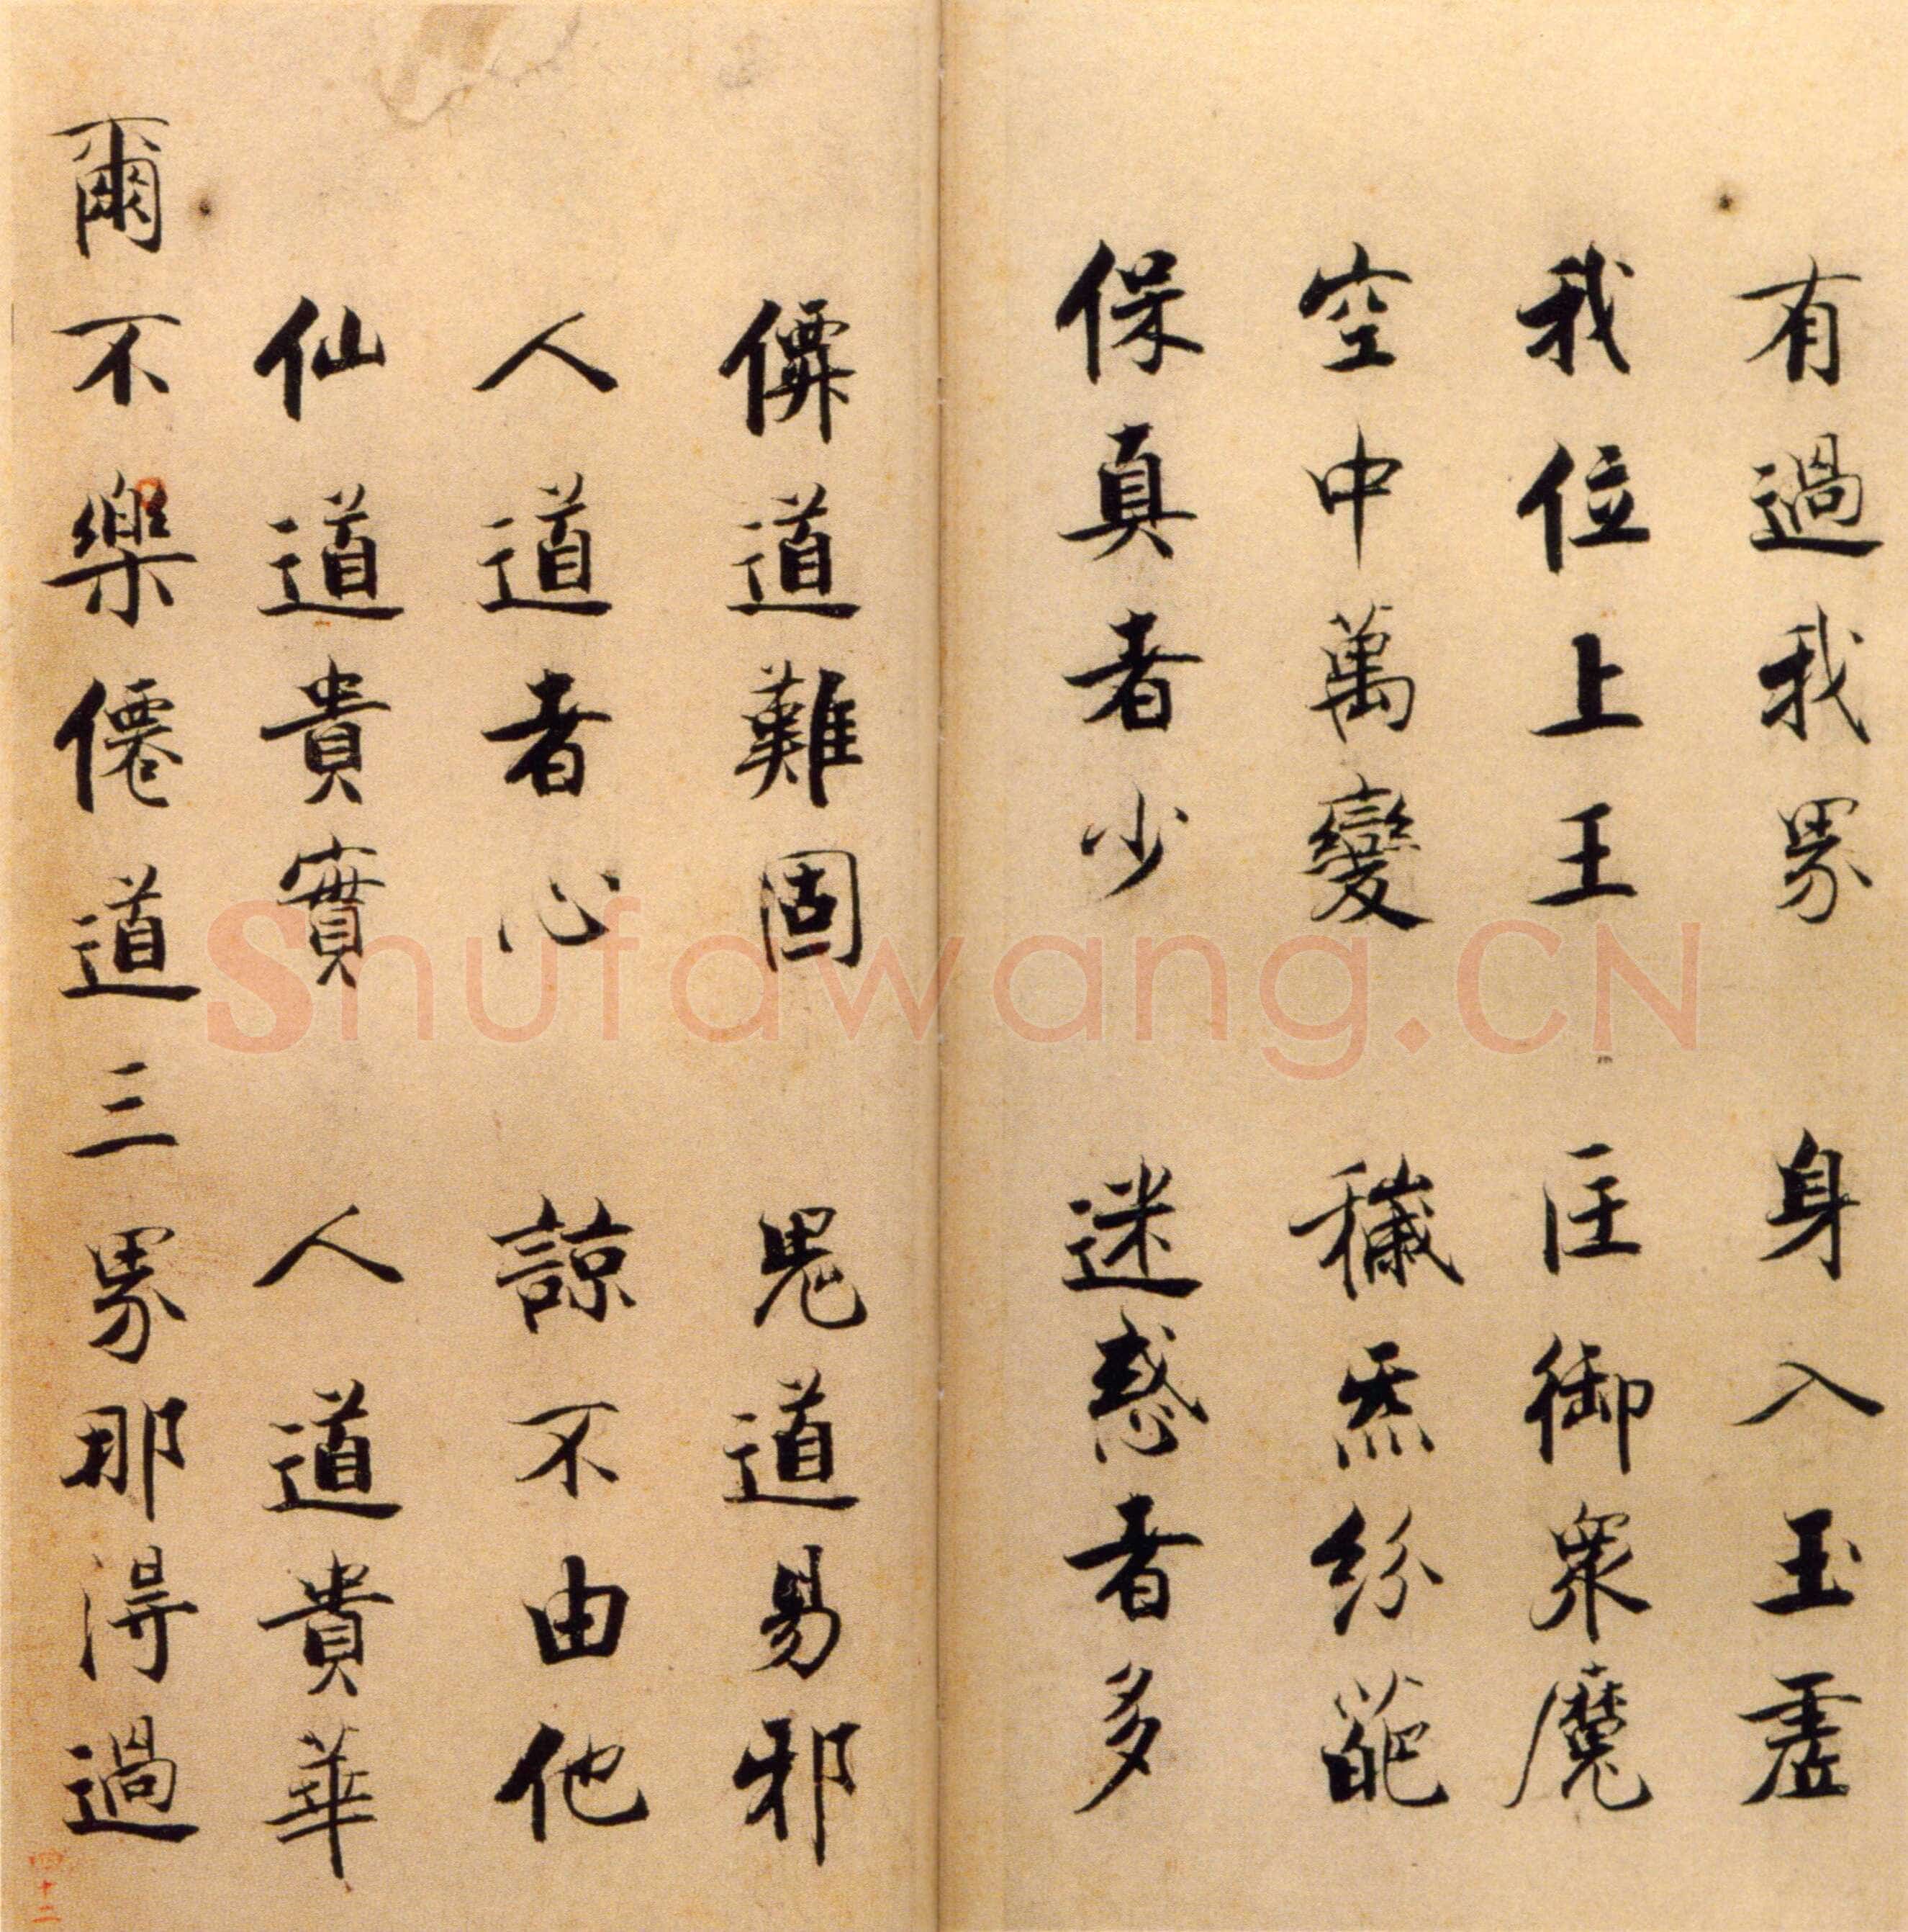 有過我界 身入玉虛
我位上王 匡御衆魔
空中萬變 穢炁紛葩
保真者少 迷惑者多
僊道難固 鬼道易邪
人道者心 諒不由他
仙道貴實 人道貴華
爾不樂僊道三界那得過
四十二
Shufawang.CN